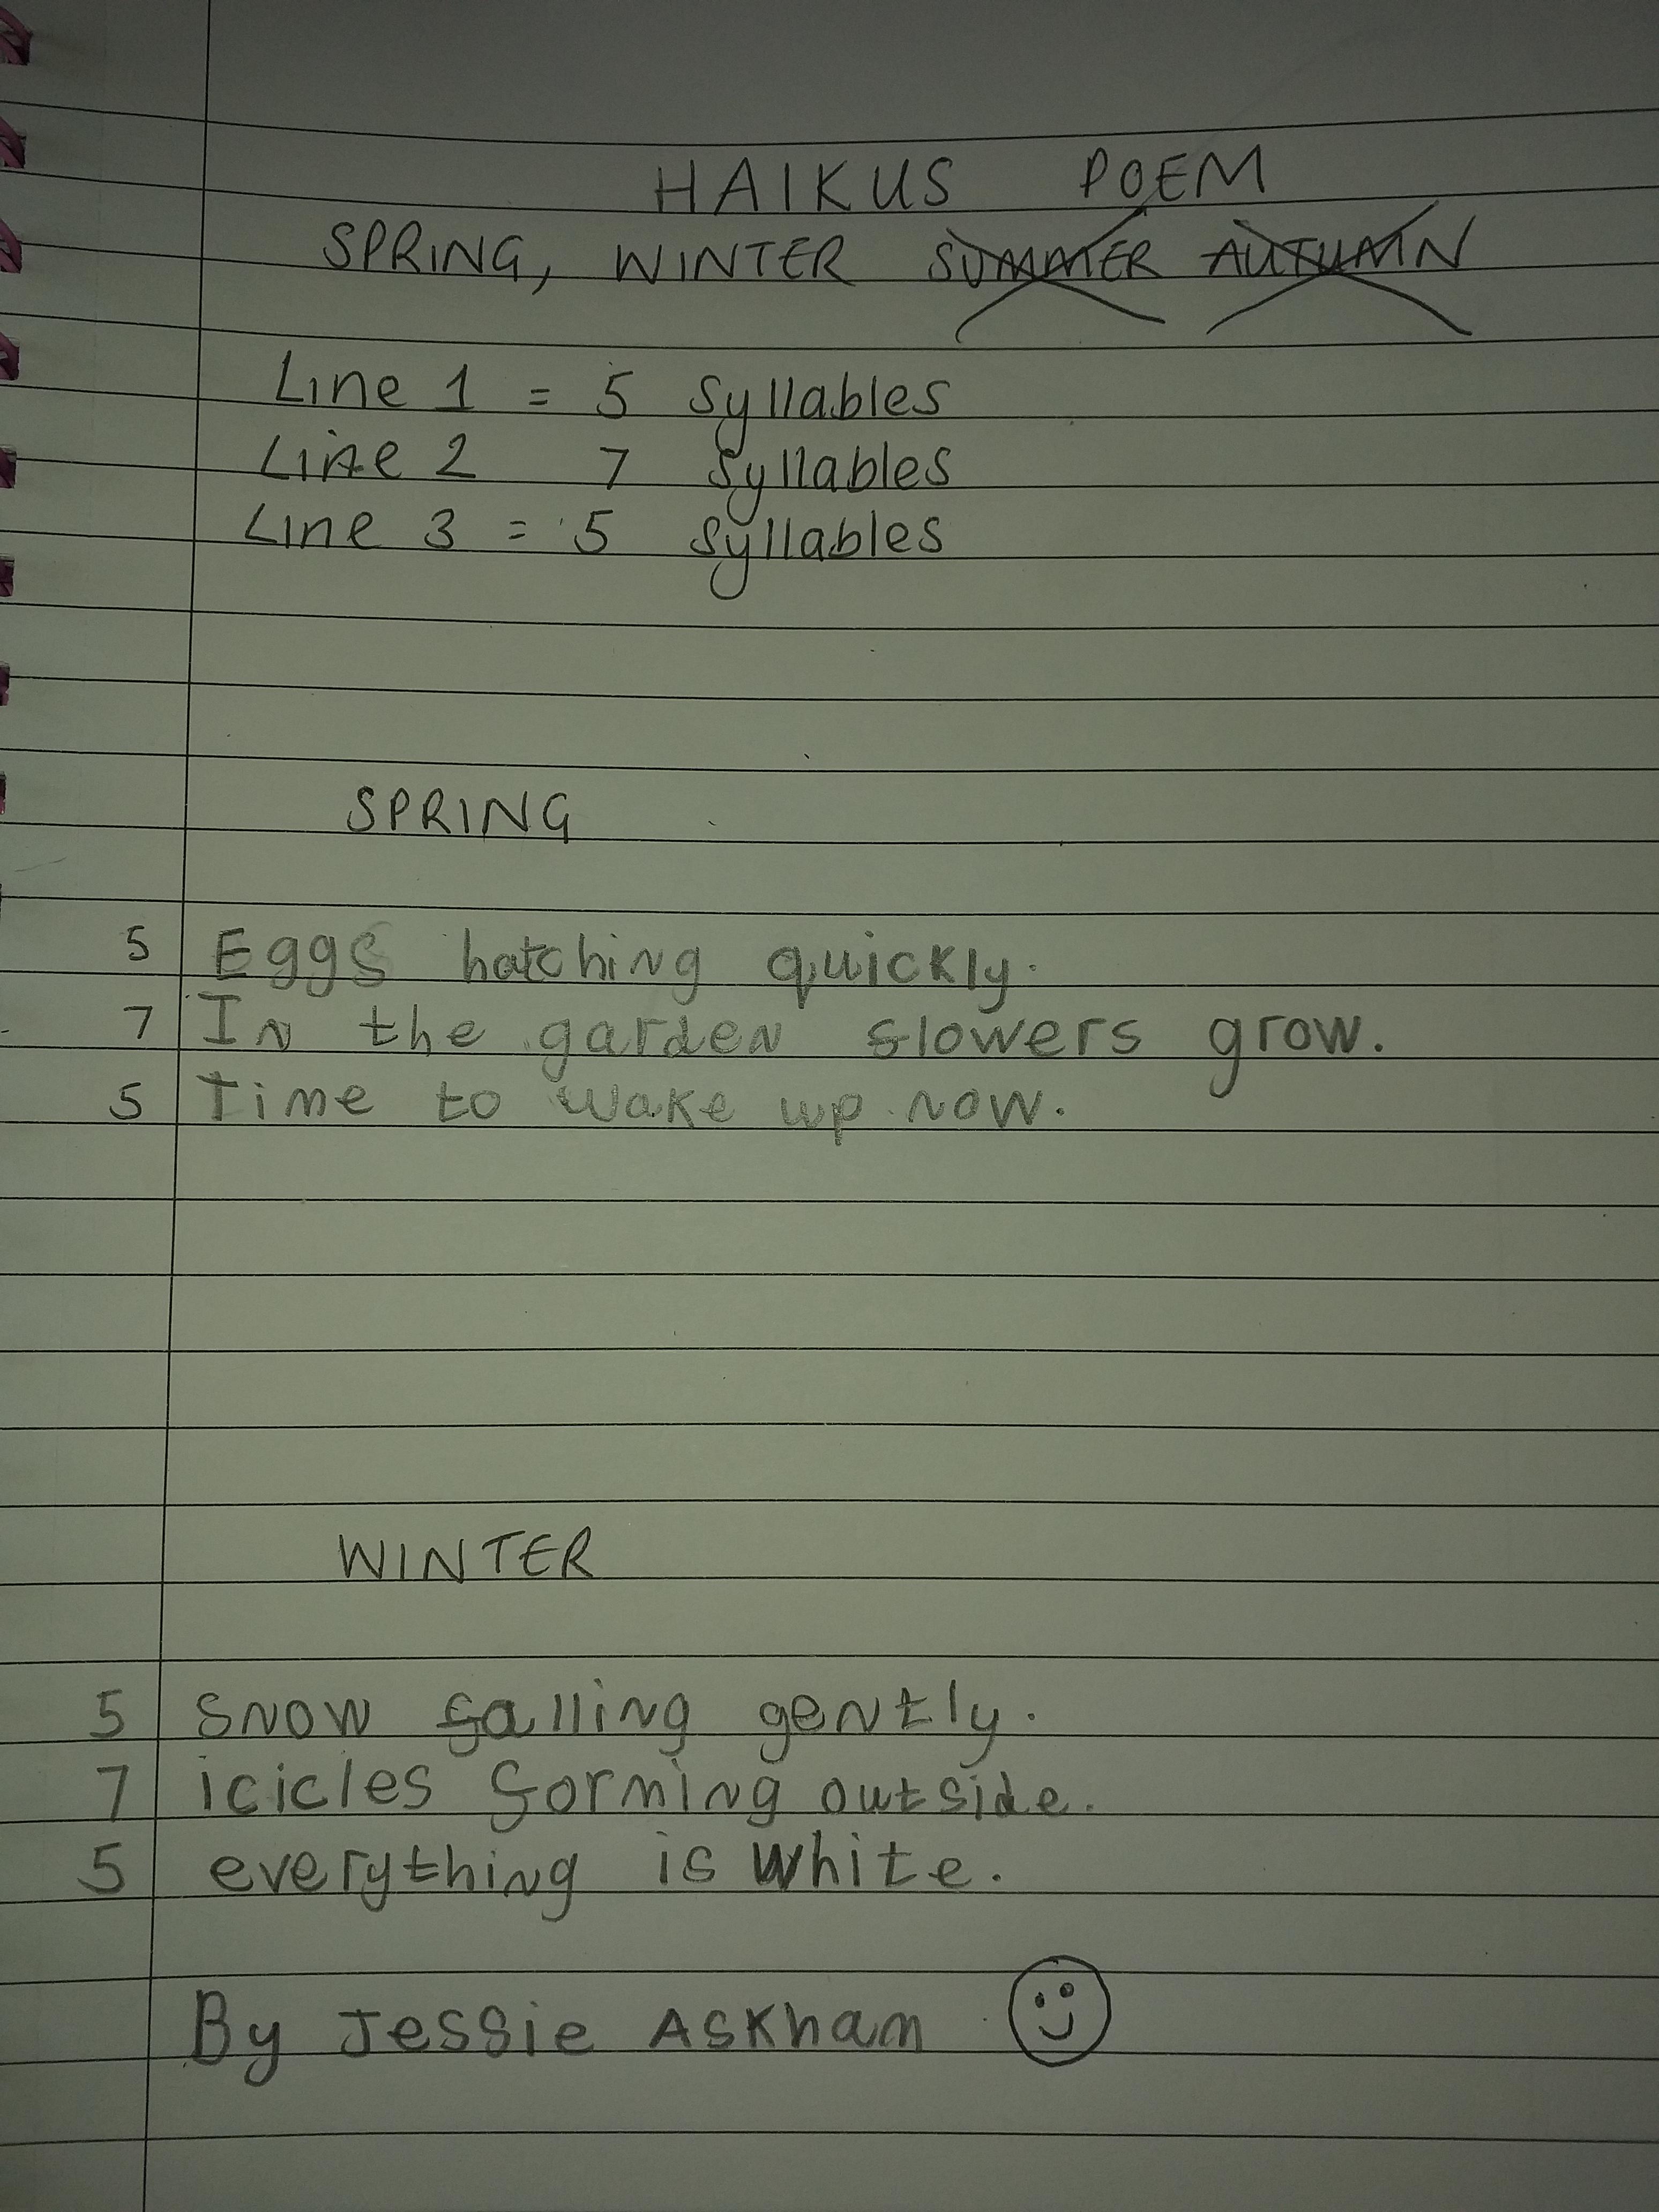 HAIKUS POEM
SPRING, WINTER SUMMER AUTUMN
Line 1 = 5 Syllables
Line 2 7 Syllables
Line 3 = 5 Syllables
SPRING
5 Eggs hatching quickly.
7 In the garden flowers grow.
5 Time to wake up now.
WINTER
5 Snow falling gently.
7 icicles forming outside.
5 everything is white.
By Jessie Askham